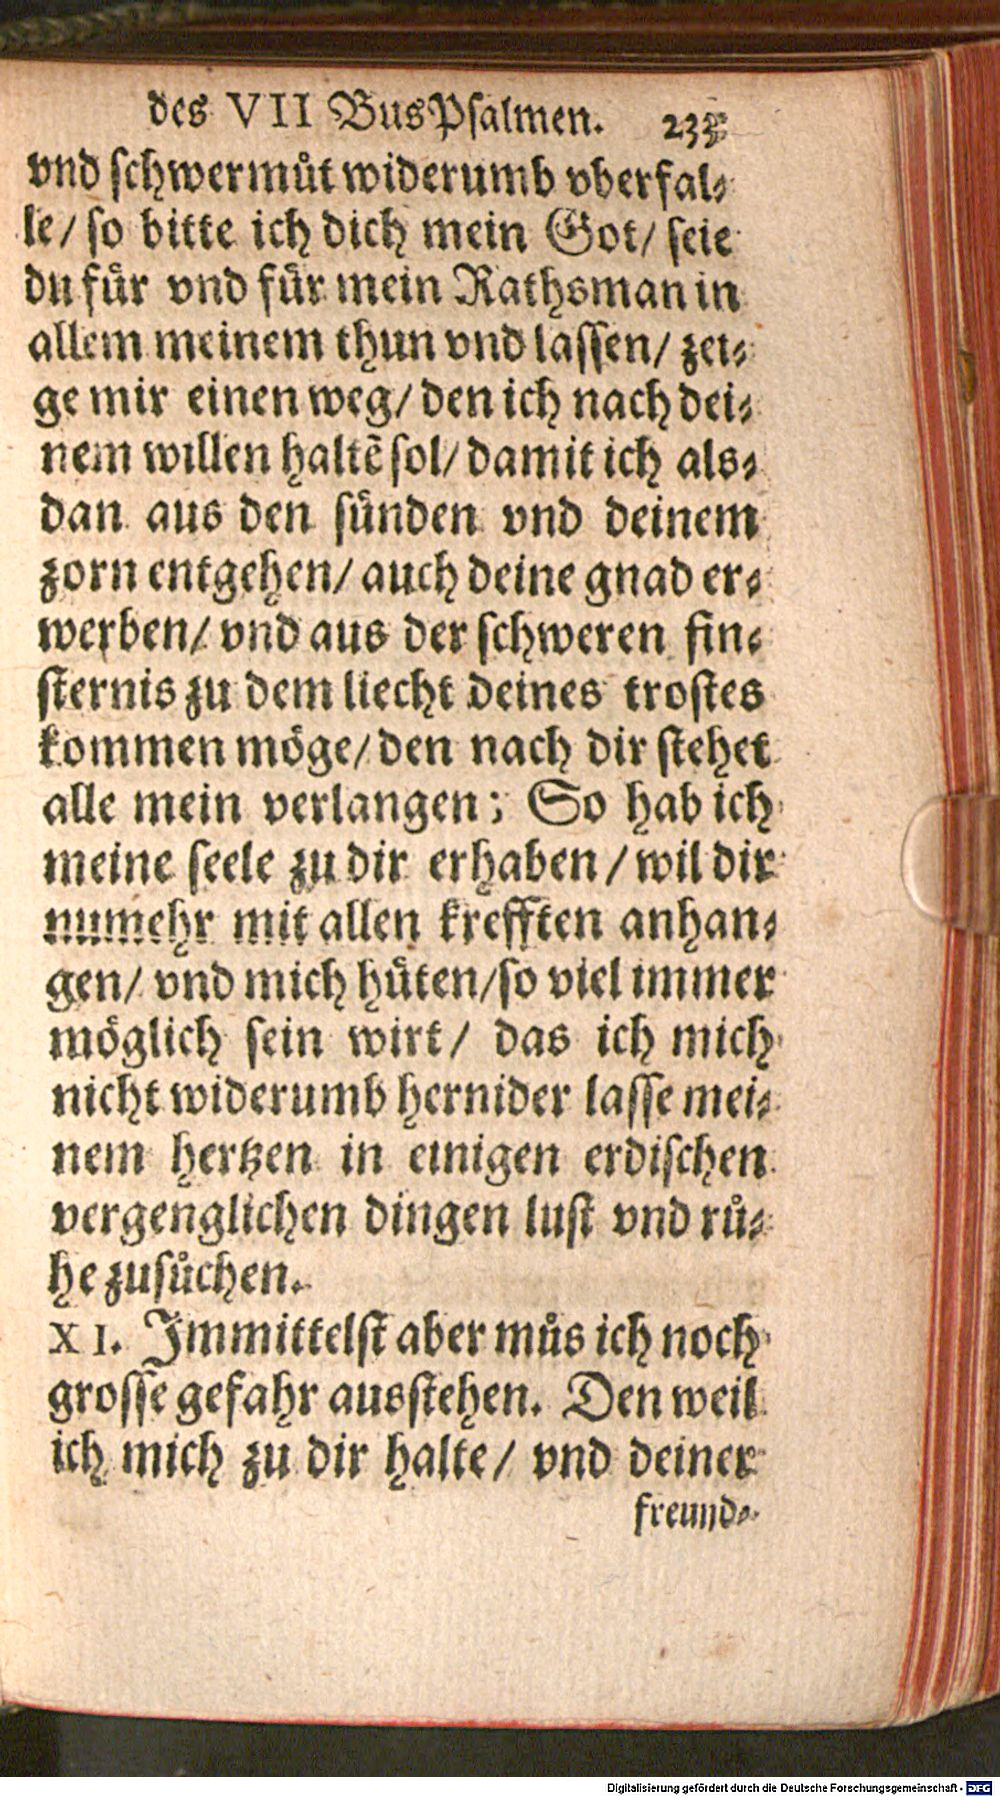 des VII BusPsalmen. 233
vnd schwermůt widerumb vberfal⸗
le/ so bitte ich dich mein Got/ seie
du fuͤr vnd fuͤr mein Rathsman in
allem meinem thun vnd lassen/ zei⸗
ge mir einen weg/ den ich nach dei⸗
nem willen haltẽ sol/ damit ich als⸗
dan aus den suͤnden vnd deinem
zorn entgehen/ auch deine gnad er⸗
werben/ vnd aus der schweren fin⸗
sternis zu dem liecht deines trostes
kommen moͤge/ den nach dir stehet
alle mein verlangen; So hab ich
meine seele zu dir erhaben/ wil dir
numehr mit allen krefften anhan⸗
gen/ vnd mich huͤten/ so viel immer
moͤglich sein wirt/ das ich mich
nicht widerumb hernider lasse mei⸗
nem hertzen in einigen erdischen
vergenglichen dingen lust vnd rů⸗
he zusůchen.
XI. Jmmittelst aber můs ich noch
grosse gefahr ausstehen. Den weil
ich mich zu dir halte/ vnd deiner
freund⸗
Digitalisierung gefördert durch die Deutsche Forschungsgemeinschaft - DFG